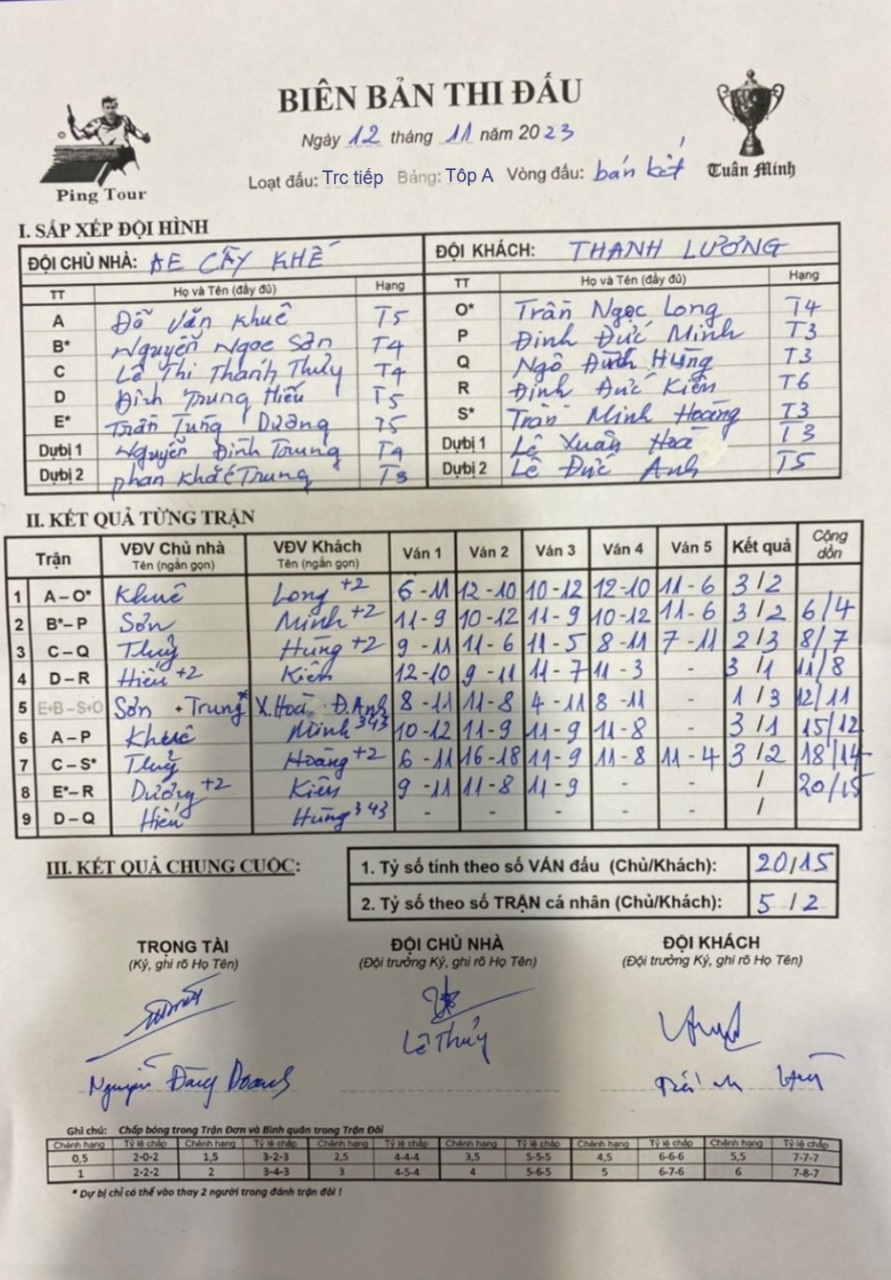 BIÊN BẢN THI ĐẤU
Ngày 12 tháng 11 năm 2023
Loạt đấu: Trc tiếp Bảng: Tôp A Vòng đấu: bán kết
Ping Tour
Tuân Minh
I. SẮP XẾP ĐỘI HÌNH
ĐỘI CHỦ NHÀ: AE CÂY KHẾ ĐỘI KHÁCH: THANH LƯƠNG
TT Họ và Tên (đầy đủ) Hạng TT Họ và Tên (đầy đủ) Hạng
A Đỗ Văn Khuê T5 O* Trần Ngọc Long T4
B* Nguyễn Ngọc Sơn T4 P Đinh Đức Minh T3
C Lê Thị Thanh Thủy T4 Q Ngô Đình Hùng T3
D Đinh Trung Hiếu T5 R Định Đức Kiên T6
E* Trần Tùng Dương T5 S* Trần Minh Hoàng T3
Dựbị 1 Nguyễn Đình Trung T4 Dựbị 1 Lê Xuân Hoà T3
Dựbị 2 phan Khắc Trung T3 Dựbị 2 Lê Đức Anh T5
II. KẾT QUẢ TỪNG TRẬN
Trận VĐV Chủ nhà Tên (ngắn gọn) VĐV Khách Tên (ngắn gọn) Ván 1 Ván 2 Ván 3 Ván 4 Ván 5 Kết quả Cộng dồn
1 A – O* Khuê Long +2 6 - 11 12 - 10 10 - 12 12 - 10 11 - 6 3 / 2
2 B* – P Sơn Minh +2 11 - 9 10 - 12 11 - 9 10 - 12 11 - 6 3 / 2 6/4
3 C – Q Thuỷ Hùng +2 9 - 11 11 - 6 11 - 5 8 - 11 7 - 11 2 / 3 8/7
4 D – R Hiếu +2 Kiên 12 - 10 9 - 11 11 - 7 11 - 3 - 3 / 1 11/8
5 E+B – S+O Sơn + Trung* X.Hoà Đ.Anh 8 - 11 11 - 8 4 - 11 8 - 11 - 1 / 3 12/11
6 A – P Khuê Minh 343 10 - 12 11 - 9 11 - 9 11 - 8 - 3 / 1 15/12
7 C – S* Thuỷ Hoàng +2 6 - 11 16 - 18 11 - 9 11 - 8 11 - 4 3 / 2 18/14
8 E* – R Dương +2 Kiên 9 - 11 11 - 8 11 - 9 - - / 20/15
9 D – Q Hiếu Hùng 343 - - - - - /
III. KẾT QUẢ CHUNG CUỘC:
1. Tỷ số tính theo số VÁN đấu (Chủ/Khách): 20/15
2. Tỷ số theo số TRẬN cá nhân (Chủ/Khách): 5 / 2
TRỌNG TÀI ĐỘI CHỦ NHÀ ĐỘI KHÁCH
(Ký, ghi rõ Họ Tên) (Đội trưởng Ký, ghi rõ Họ Tên) (Đội trưởng Ký, ghi rõ Họ Tên)
Lê Thủy
Nguyễn Đăng Doanh
Ghi chú: Chấp bóng trong Trận Đơn và Bình quân trong Trận Đôi
Chênh hạng Tỷ lệ chấp Chênh hạng Tỷ lệ chấp Chênh hạng Tỷ lệ chấp Chênh hạng Tỷ lệ chấp Chênh hạng Tỷ lệ chấp Chênh hạng Tỷ lệ chấp
0,5 2-0-2 1,5 3-2-3 2,5 4-4-4 3,5 5-5-5 4,5 6-6-6 5,5 7-7-7
1 2-2-2 2 3-4-3 3 4-5-4 4 5-6-5 5 6-7-6 6 7-8-7
* Dự bị chỉ có thể vào thay 2 người trong đánh trận đôi !